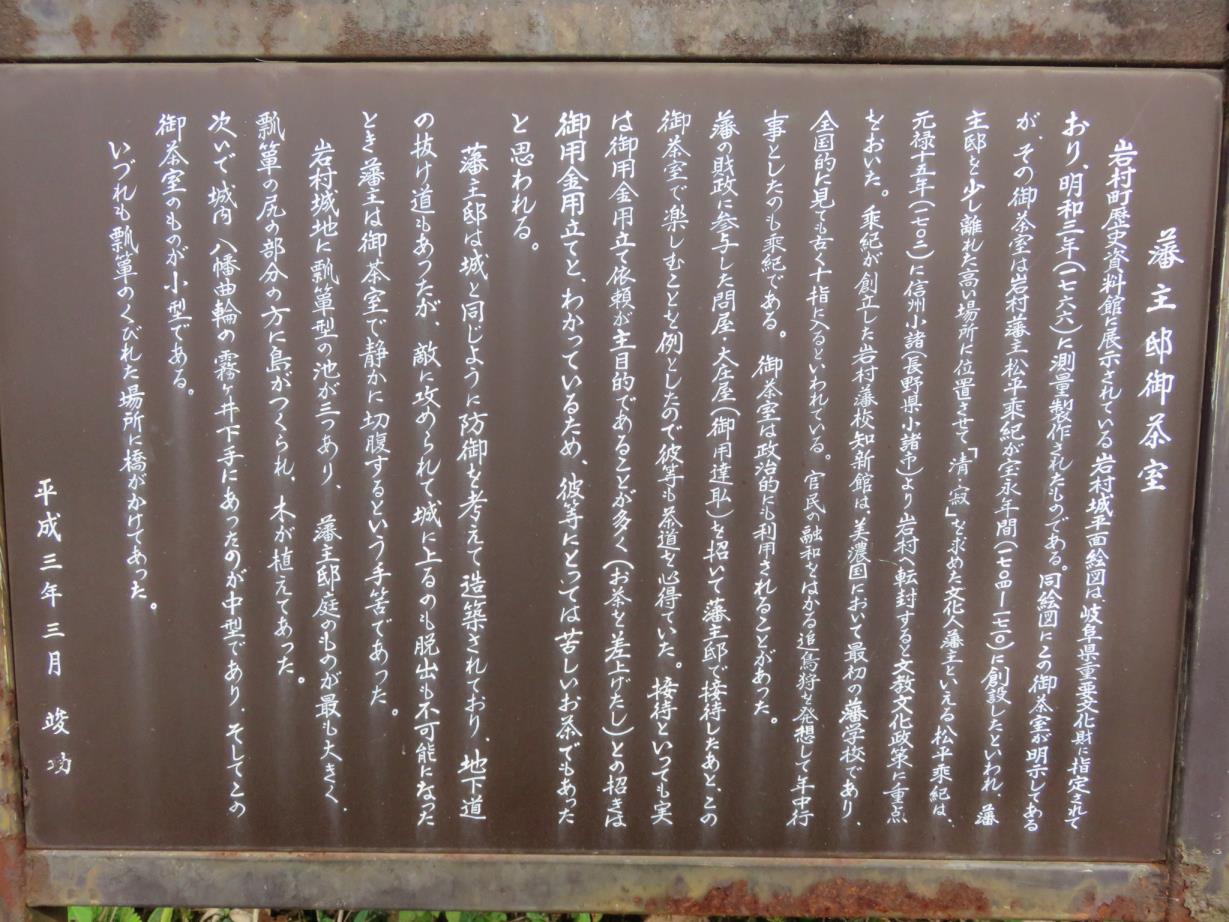 藩主邸御茶室
岩村町歴史資料館に展示されている岩村城平面絵図は、岐阜県重要文化財に指定されて
おり、明和三年(一七六六)に測量製作されたものである。同絵図にこの御茶室が明示してある
が、その御茶室は岩村藩主松平乗紀が宝永年間(一七〇四ー一七一〇)に創設したといわれ、藩
主邸を少し離れた高い場所に位置させて「清・寂」を求めた文化人藩主といえる松平乗紀は、
元禄十五年(一七〇二)に信州小諸(長野県小諸市)より岩村へ転封すると文教文化政策に重点
をおいた。乗紀が創立した岩村藩校知新館は、美濃国において最初の藩学校であり、
全国的に見ても古く十指に入るといわれている。官民の融和をはかる追鳥狩を発想して年中行
事としたのも乗紀である。御茶室は政治的にも利用されることがあった。
藩の財政に参与した問屋・大庄屋(御用達耺)を招いて藩主邸で接待したあと、この
御茶室で楽しむことを例としたので彼等も茶道を心得ていた。接待といっても実
は御用金用立て依頼が主目的であることが多く(お茶を差上げたし)との招きは
御用金用立てと、わかっているため、彼等にとっては苦しいお茶でもあった
と思われる。
藩主邸は城と同じように防御を考えて造築されており、地下道
の抜け道もあったが、敵に攻められて城に上るのも脱出も不可能になった
とき藩主は御茶室で静かに切腹するという手筈であった。
岩村城地に瓢箪型の池が三つあり、藩主邸庭のものが最も大きく、
瓢箪の尻の部分の方に島がつくられ、木が植えてあった。
次いで城内八幡曲輪の霧ヶ井下手にあったのが中型であり、そしてこの
御茶室のものが小型である。
いづれも瓢箪のくびれた場所に橋がかけてあった。
平成三年三月 竣功